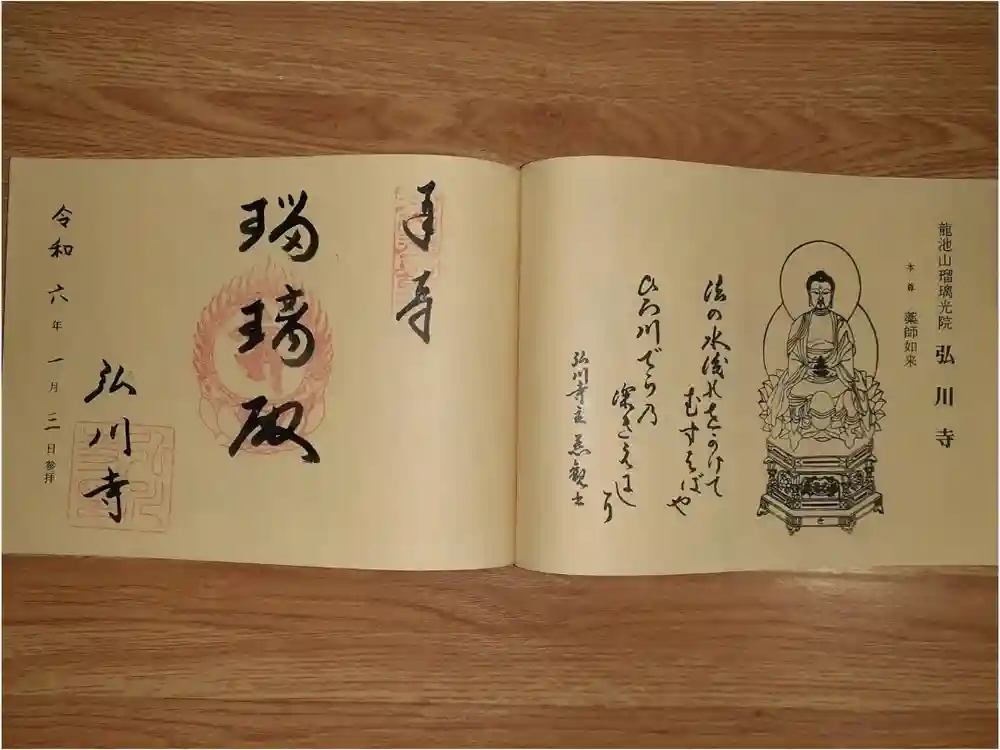 龍池山瑠璃光院 弘川寺
本尊 薬師如来
法の水浅れをかけて
むすはゞや
ひろ川でらの
深きえにしり
弘川寺主
奉拝
瑠璃殿
弘川寺
令和六年一月三日参拝